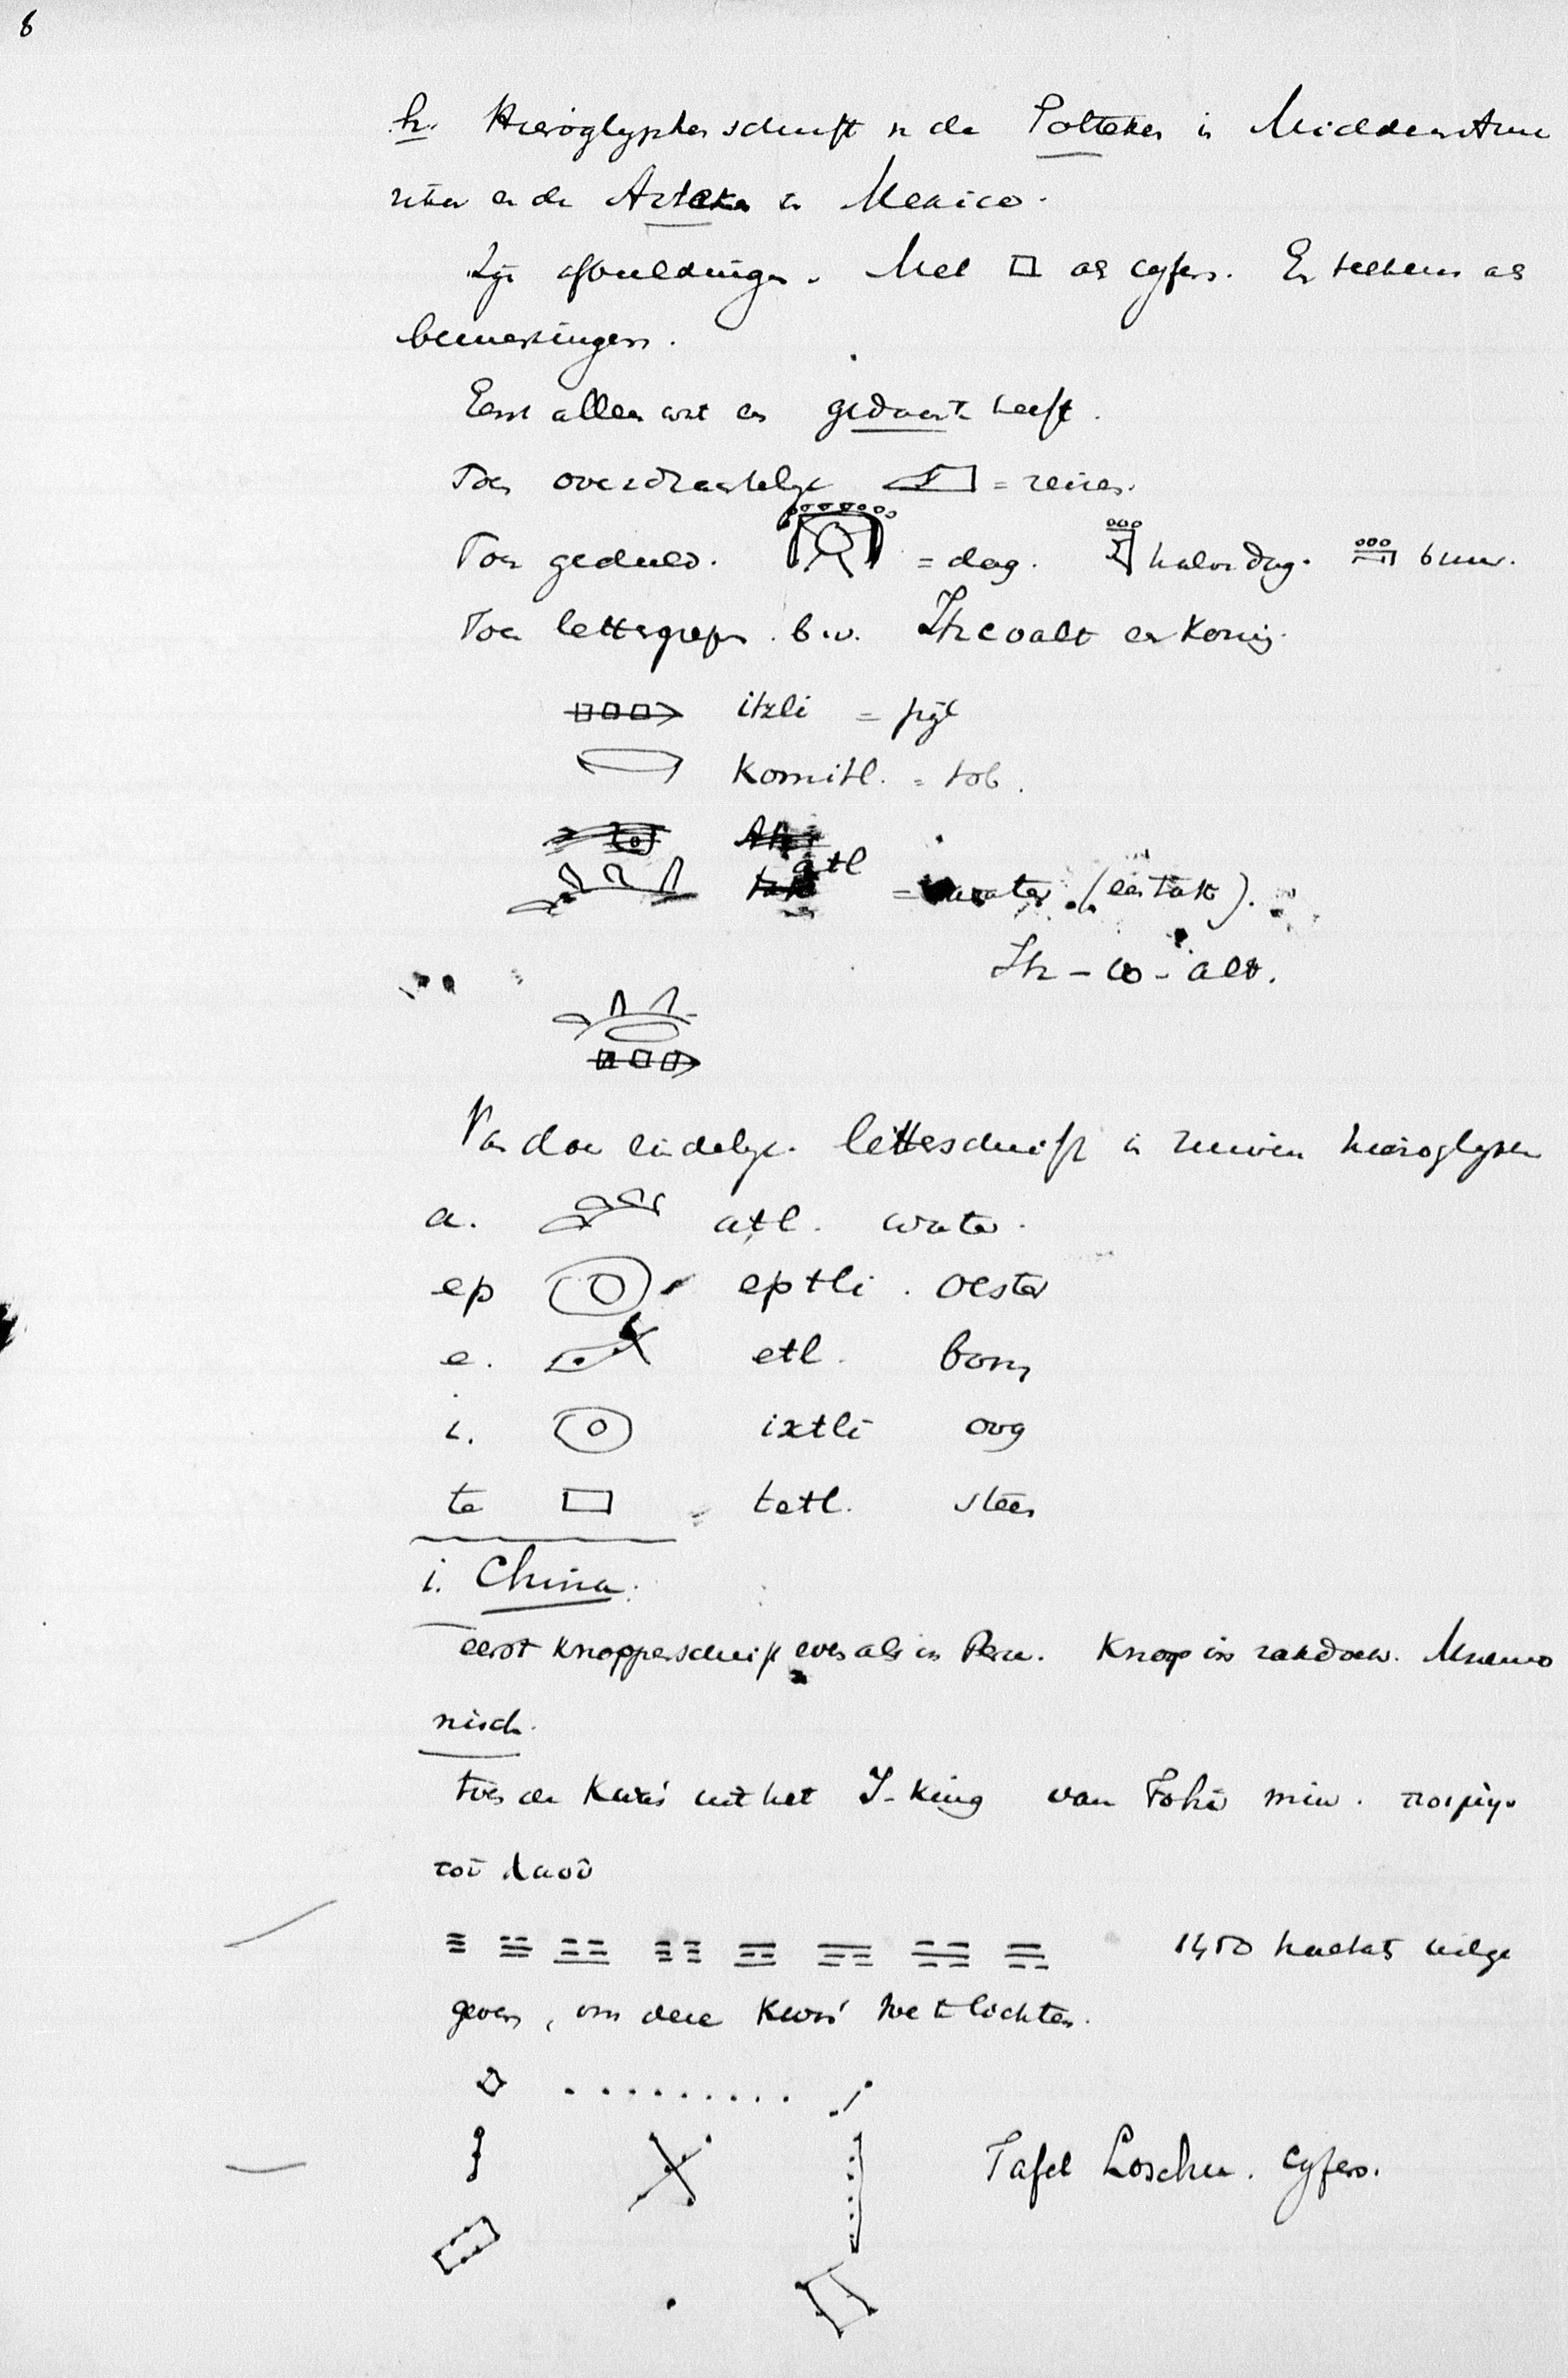 8
h. Hieroglyphenschrift v de Tolteken in Midden Ame
rika en de Azteken in Mexico.
Zijn afbeeldingen. Met als cyfers. En als
bemerkingen.
Eerst alleen wat een gedaante heeft.
Toen overdrachtelijk = reizen.
Toen geduld. = dag. halve dag. 6 uur.
Toen lettergrepen. b.v. Itzcoalt een Koning.
itzli = pijl
Komitl. = tob.
atl = water. (een tak).
Itz - co - alt.
Van daar eindelijk. letterschrift in zuivere hieroglyfen
a. atl. water.
ep eptli. oester
e. etl. boon
i. ixtli oog
te tetl. steen
i. China.
eerst Knoppenschrift even als in Peru. Knoop in zakdoek. Mnemo
nisch.
toen de Kwa's uit het I-King van Fohi min. ποιμήν
τοῦ λαοῦ
1450 uitge
geven, om deze Kwa's toe te lichten.
Tafel Loschu. Cyfers.